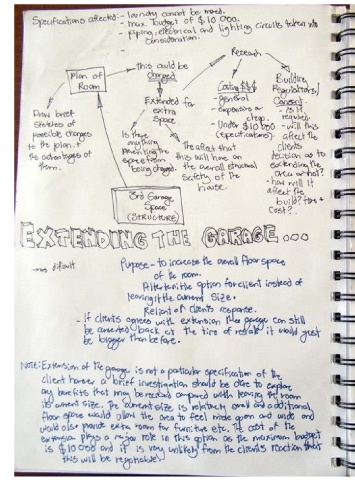 Specifications affected: - laundry cannot be moved.
- max. budget of $10 000.
- piping, electrical and lighting circuits taken into
consideration.
-
Plan of
Room
This could be
changed
Research
Draw brief
sketches of
possible changes
to the plan +
the advantages of
them.
Extended for
extra space
Is there
anything
preventing the
space from
being changed.
The affect that
this will have on
the overall structural
safety of the
house.
Costing $$$
- general
expensive or
cheap.
- Under $10 000
(specifications)
Building
Regulations/
Consent
- is it
required.
- will this
affect the
clients
decision as to
extending the
area or not?
- how will it
affect the
build? time +
cost?
3rd Garage
Space
(STRUCTURE)
EXTENDING THE GARAGE...
Purpose - to increase the overall floor space
of the room.
Alternative option for client instead of
leaving it the current size.
Reliant of clients response.
- If clients agrees with extension then garage can still
be converted back at the time of resale it would just
be bigger than before.
NOTE: Extension of the garage is not a particular specification of the
client however a brief investigation should be done to explore
any benefits that may be received compared with leaving the room
its current size. The current size is relatively small and additional
floor space would allow the area to feel more open and wide and
would also provide extra room for furniture etc. The cost of the
extension plays a major role in this option as the maximum budget
is $10 000 and it is very unlikely from the clients reaction that
this will be negotiable.